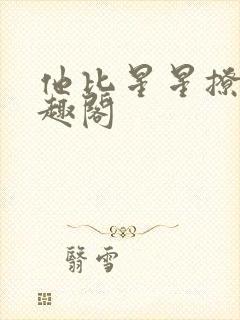 他比星星撩
趣阁
翳雪